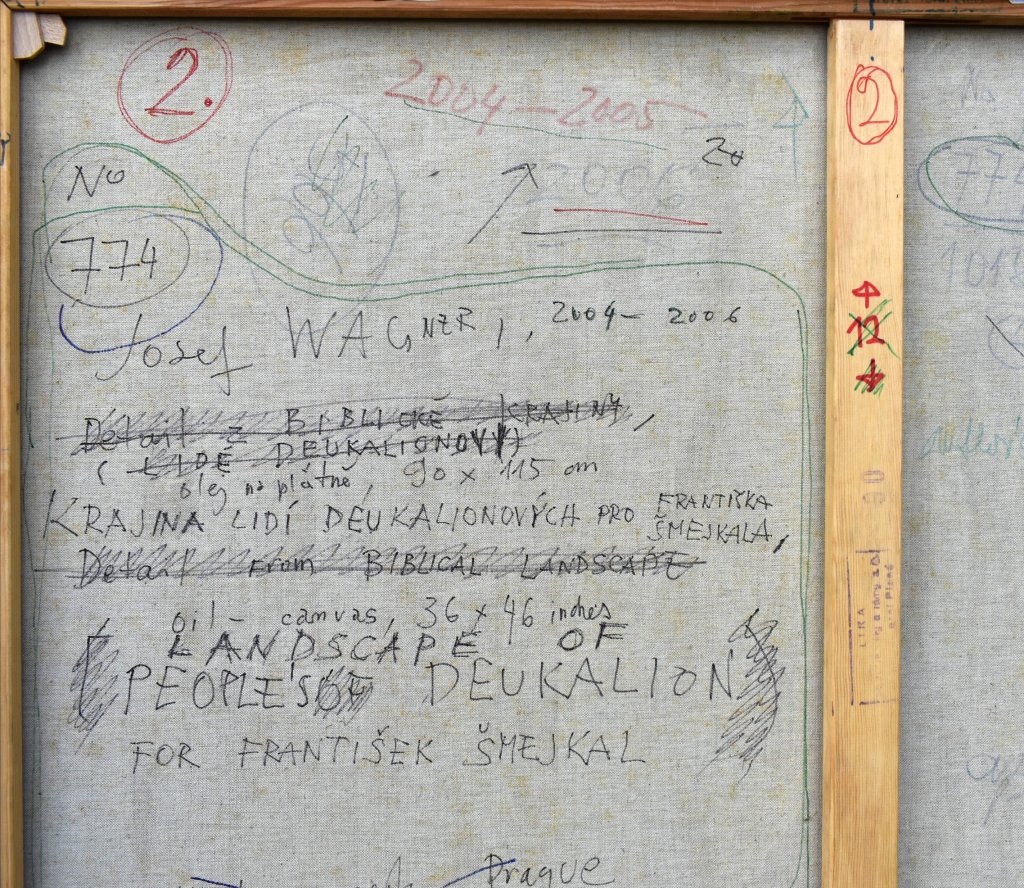 2.
2004–2005
2006
No
774
Josef WAGNER, 2004–2006
Detail z BIBLICKÉ KRAJINY,
( LIDÉ DEUKALIONOVY)
olej na plátně, 90 x 115 cm
KRAJINA LIDÍ DEUKALIONOVÝCH PRO FRANTIŠKA ŠMEJKALA,
Detail From BIBLICAL LANDSCAPE
oil – canvas, 36 x 46 inches
LANDSCAPE OF
PEOPLE'S OF DEUKALION
FOR FRANTIŠEK ŠMEJKAL
Prague
2
12
90
LIRA
No
774